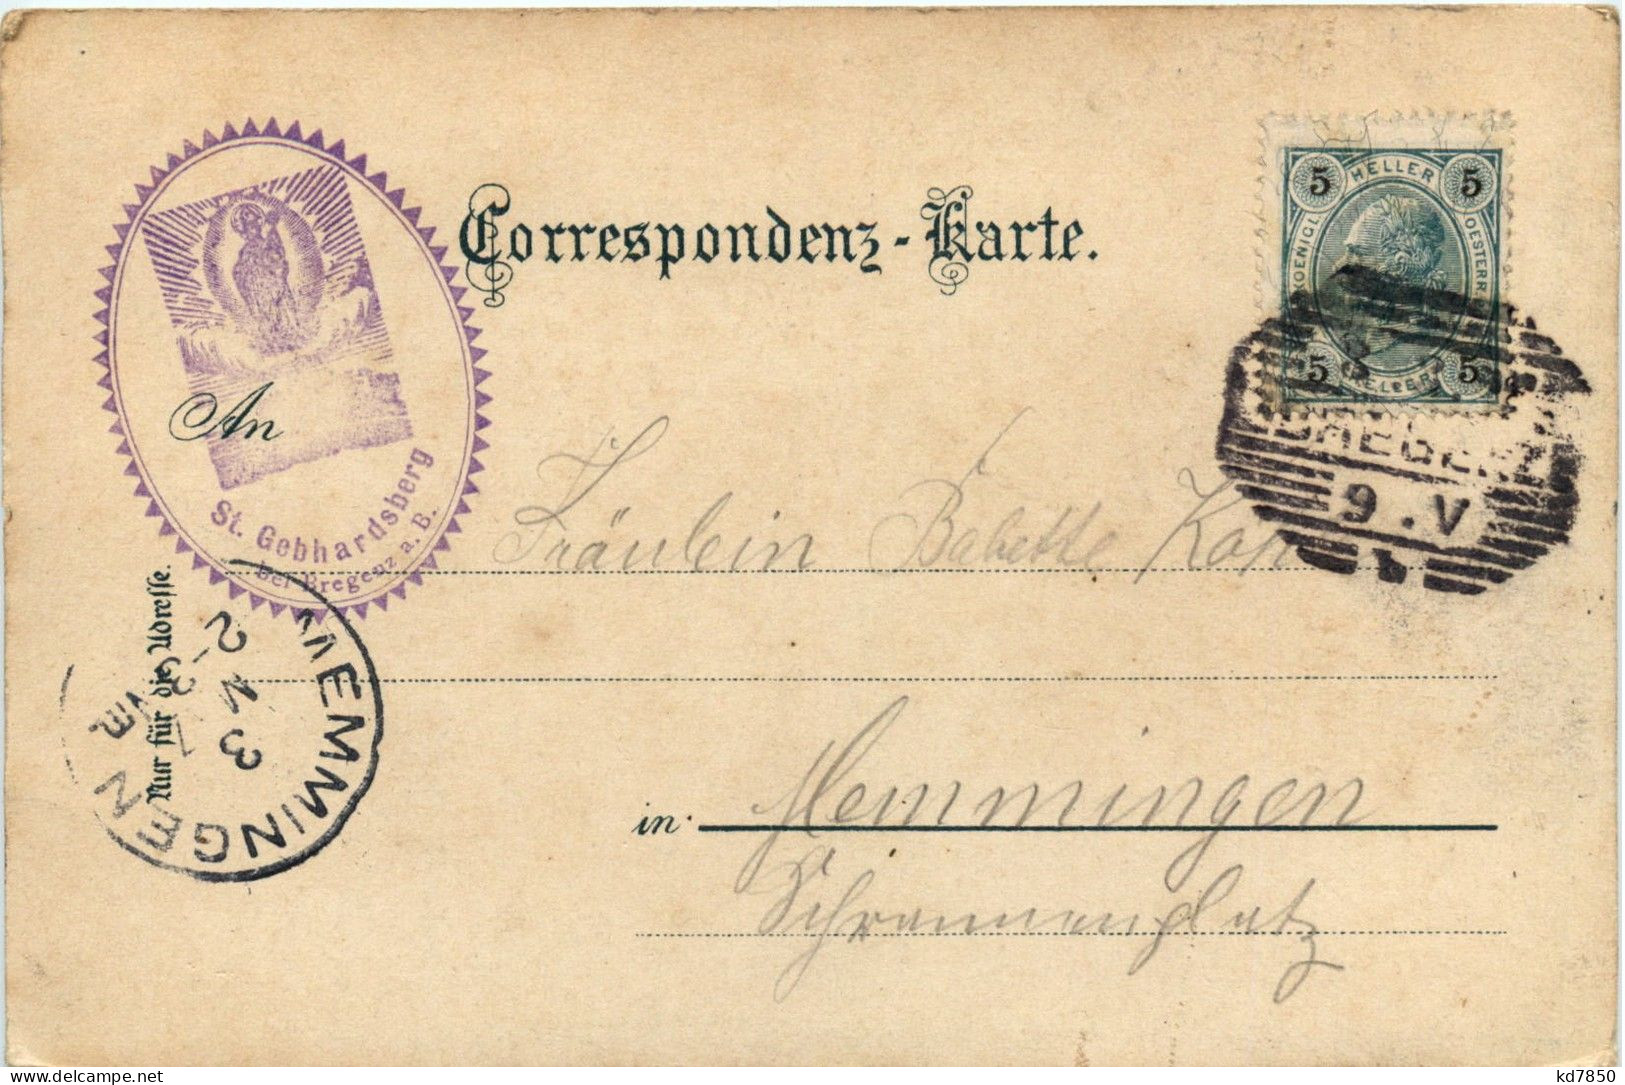 Correspondenz-Karte.
5 HELLER 5
KOENIGL. OESTERR.
5 HELLER 5
BREGENZ
9. V
An
St. Gebhardsberg
bei Bregenz a. B.
Fräulein Babette
Nur für die Adresse.
MEMMINGEN
in Memmingen
Schrannenplatz
delcampe.net
kd7850